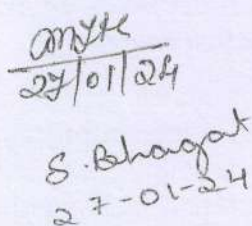 27/01/24
S. Bhagat
27-01-24